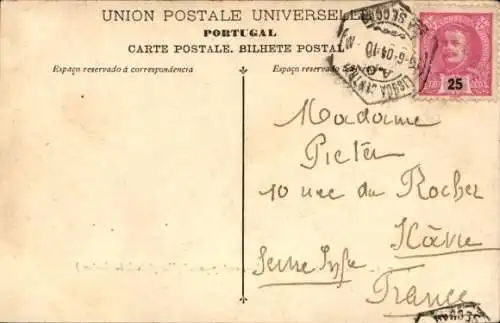 UNION POSTALE UNIVERSELLE
PORTUGAL
CARTE POSTALE. BILHETE POSTAL
Espaço reservado á correspondencia
Espaço reservado
25
LISBOA CENTRAL
Madame
Pieter
10 rue du Rocher
Havre
Seine Infre
France